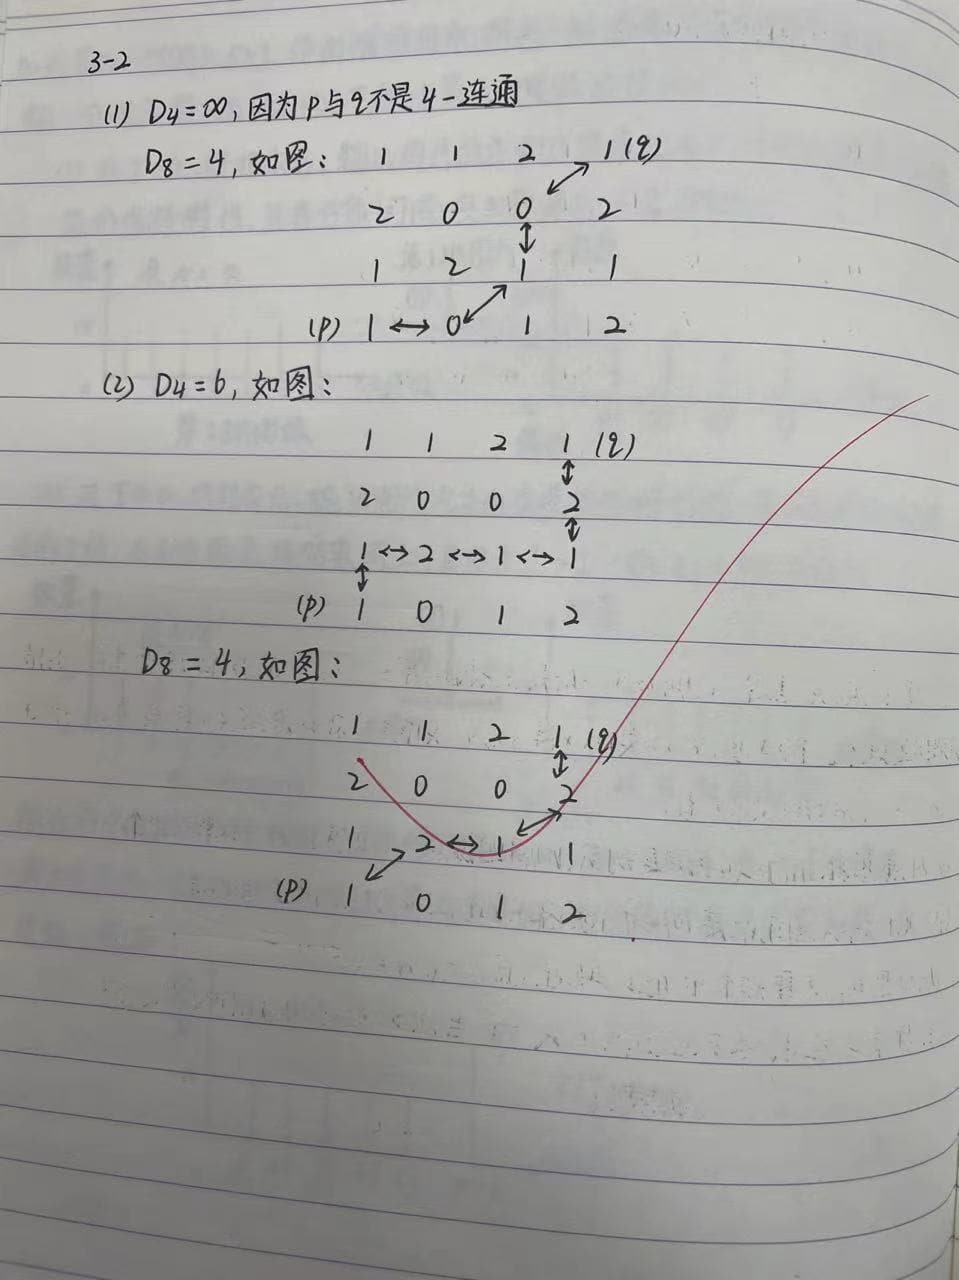 3-2
(1) D4=∞, 因为p与q不是4-连通
D8=4, 如图:
1 1 2 1(q)
2 0 0 2
1 2 1 1
(p) 1 ↔ 0 1 2
(2) D4=6, 如图:
1 1 2 1 (q)
2 0 0 2
1 ↔ 2 ↔ 1 ↔ 1
(p) 1 0 1 2
D8=4, 如图:
1 1 2 1 (q)
2 0 0 2
1 2 ↔ 1 1
(p) 1 0 1 2